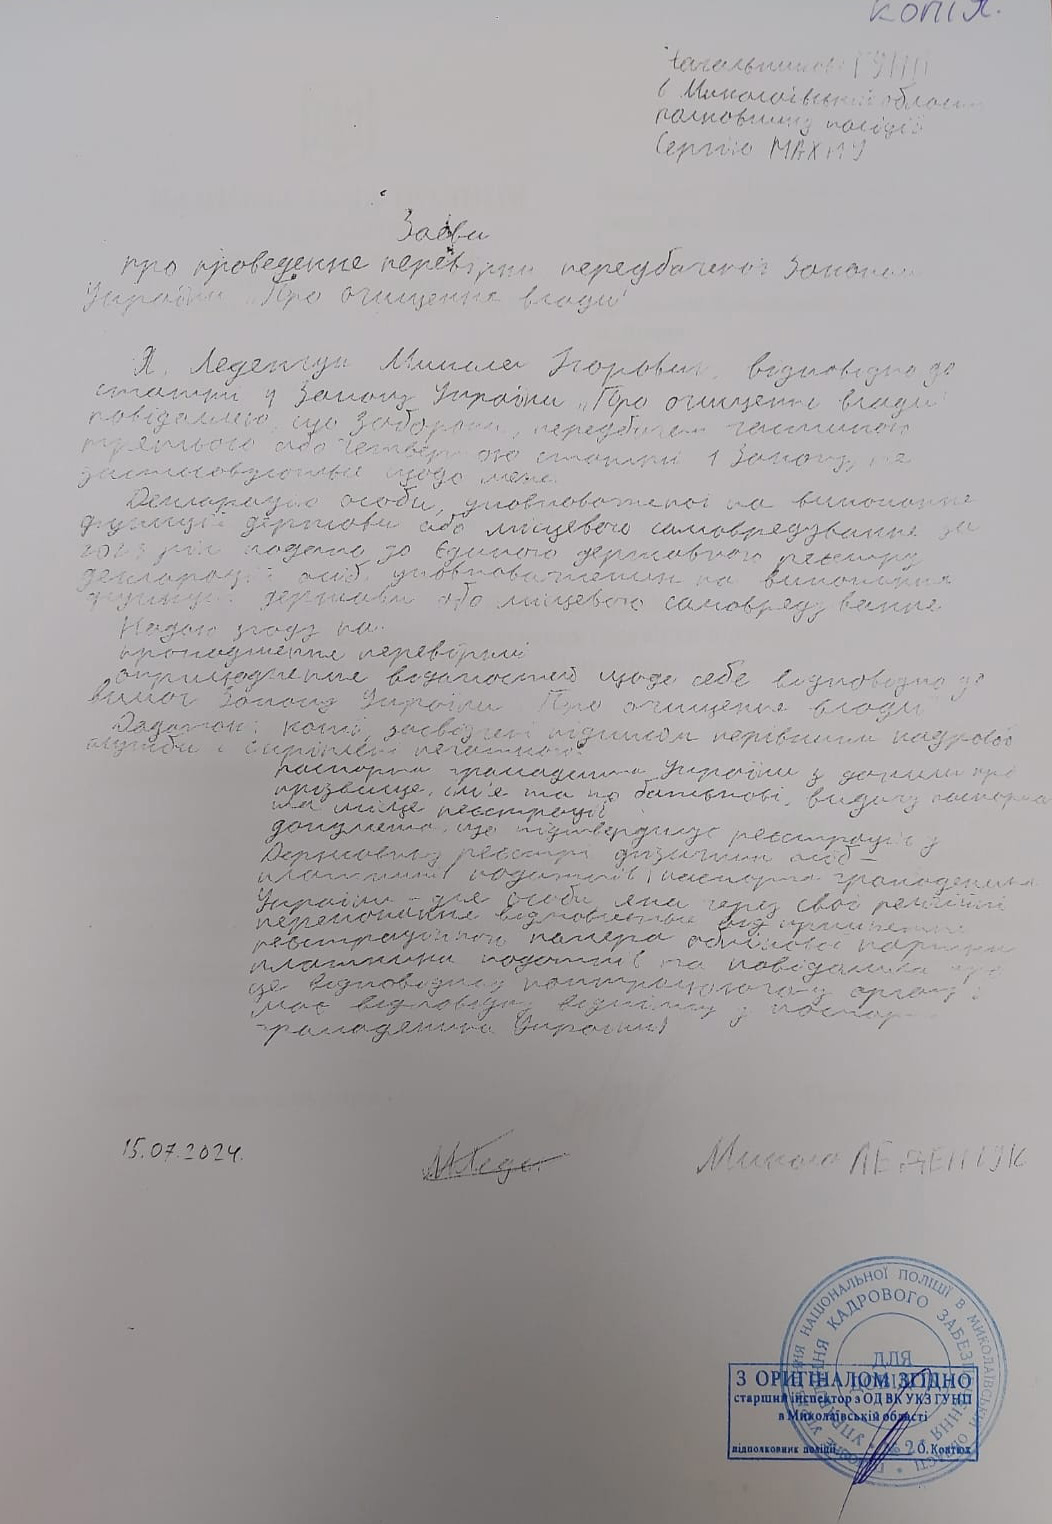 копія.
Начальникові ГУНП
в Миколаївській області
полковнику поліції
Сергію
Заява
про проведення перевірки, передбаченої Законом
України „Про очищення влади"
Я, Микола Ігорович, відповідно до
статті 4 Закону України „Про очищення влади"
повідомляю, що заборони, передбачені частиною
третьою або четвертою статті 1 Закону, не
застосовуються щодо мене.
Декларацію особи, уповноваженої на виконання
функцій держави або місцевого самоврядування за
2023 рік подано до Єдиного державного реєстру
декларацій осіб, уповноважених на виконання
функцій держави або місцевого самоврядування
Надаю згоду на:
проходження перевірки
оприлюднення відомостей щодо себе відповідно до
вимог Закону України „Про очищення влади"
Додаток: копії, засвідчені підписом керівника кадрової
служби і скріплені печаткою:
паспорта громадянина України з даними про
прізвище, ім'я та по батькові, видачу паспорта
та місце реєстрації
документа, що підтверджує реєстрацію у
Державному реєстрі фізичних осіб –
платників податків (паспорта громадянина
України - для особи, яка через свої релігійні
переконання відмовилась від прийняття
реєстраційного номера облікової картки
платника податків та повідомила про
це відповідному контролюючому органу і
має відповідну відмітку у паспорті
громадянина України)
15.07.2024.
Микола ЛЕДЕНЧУК
НАЦІОНАЛЬНОЇ ПОЛІЦІЇ В МИКОЛАЇВСЬКІЙ ОБЛАСТІ
КАДРОВОГО ЗАБЕЗПЕЧЕННЯ
ДЛЯ
З ОРИГІНАЛОМ ЗГІДНО
старший інспектор з ОД ВК УКЗ ГУНП
в Миколаївській області
підполковник поліції О. Ковтюх